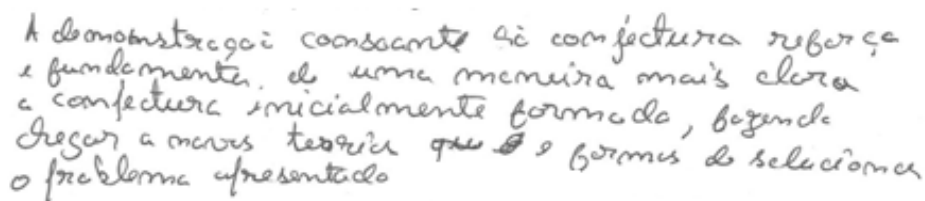 A demonstração consoante a conjectura reforça
e fundamenta, de uma maneira mais clara
a conjectura inicialmente formada, fazendo
chegar a novas teorias e formas de solucionar
o problema apresentado